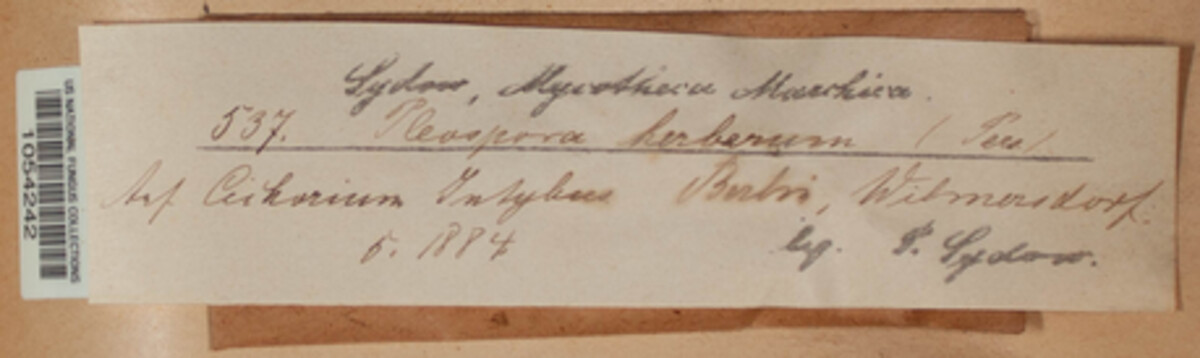 Sydow, Mycotheca Marchica.
537. Pleospora herbarum (Pers)
Auf Cichorium Intybus Berlin, Wilmersdorf.
5. 1884 leg. P. Sydow.
US NATIONAL FUNGUS COLLECTIONS
1054242